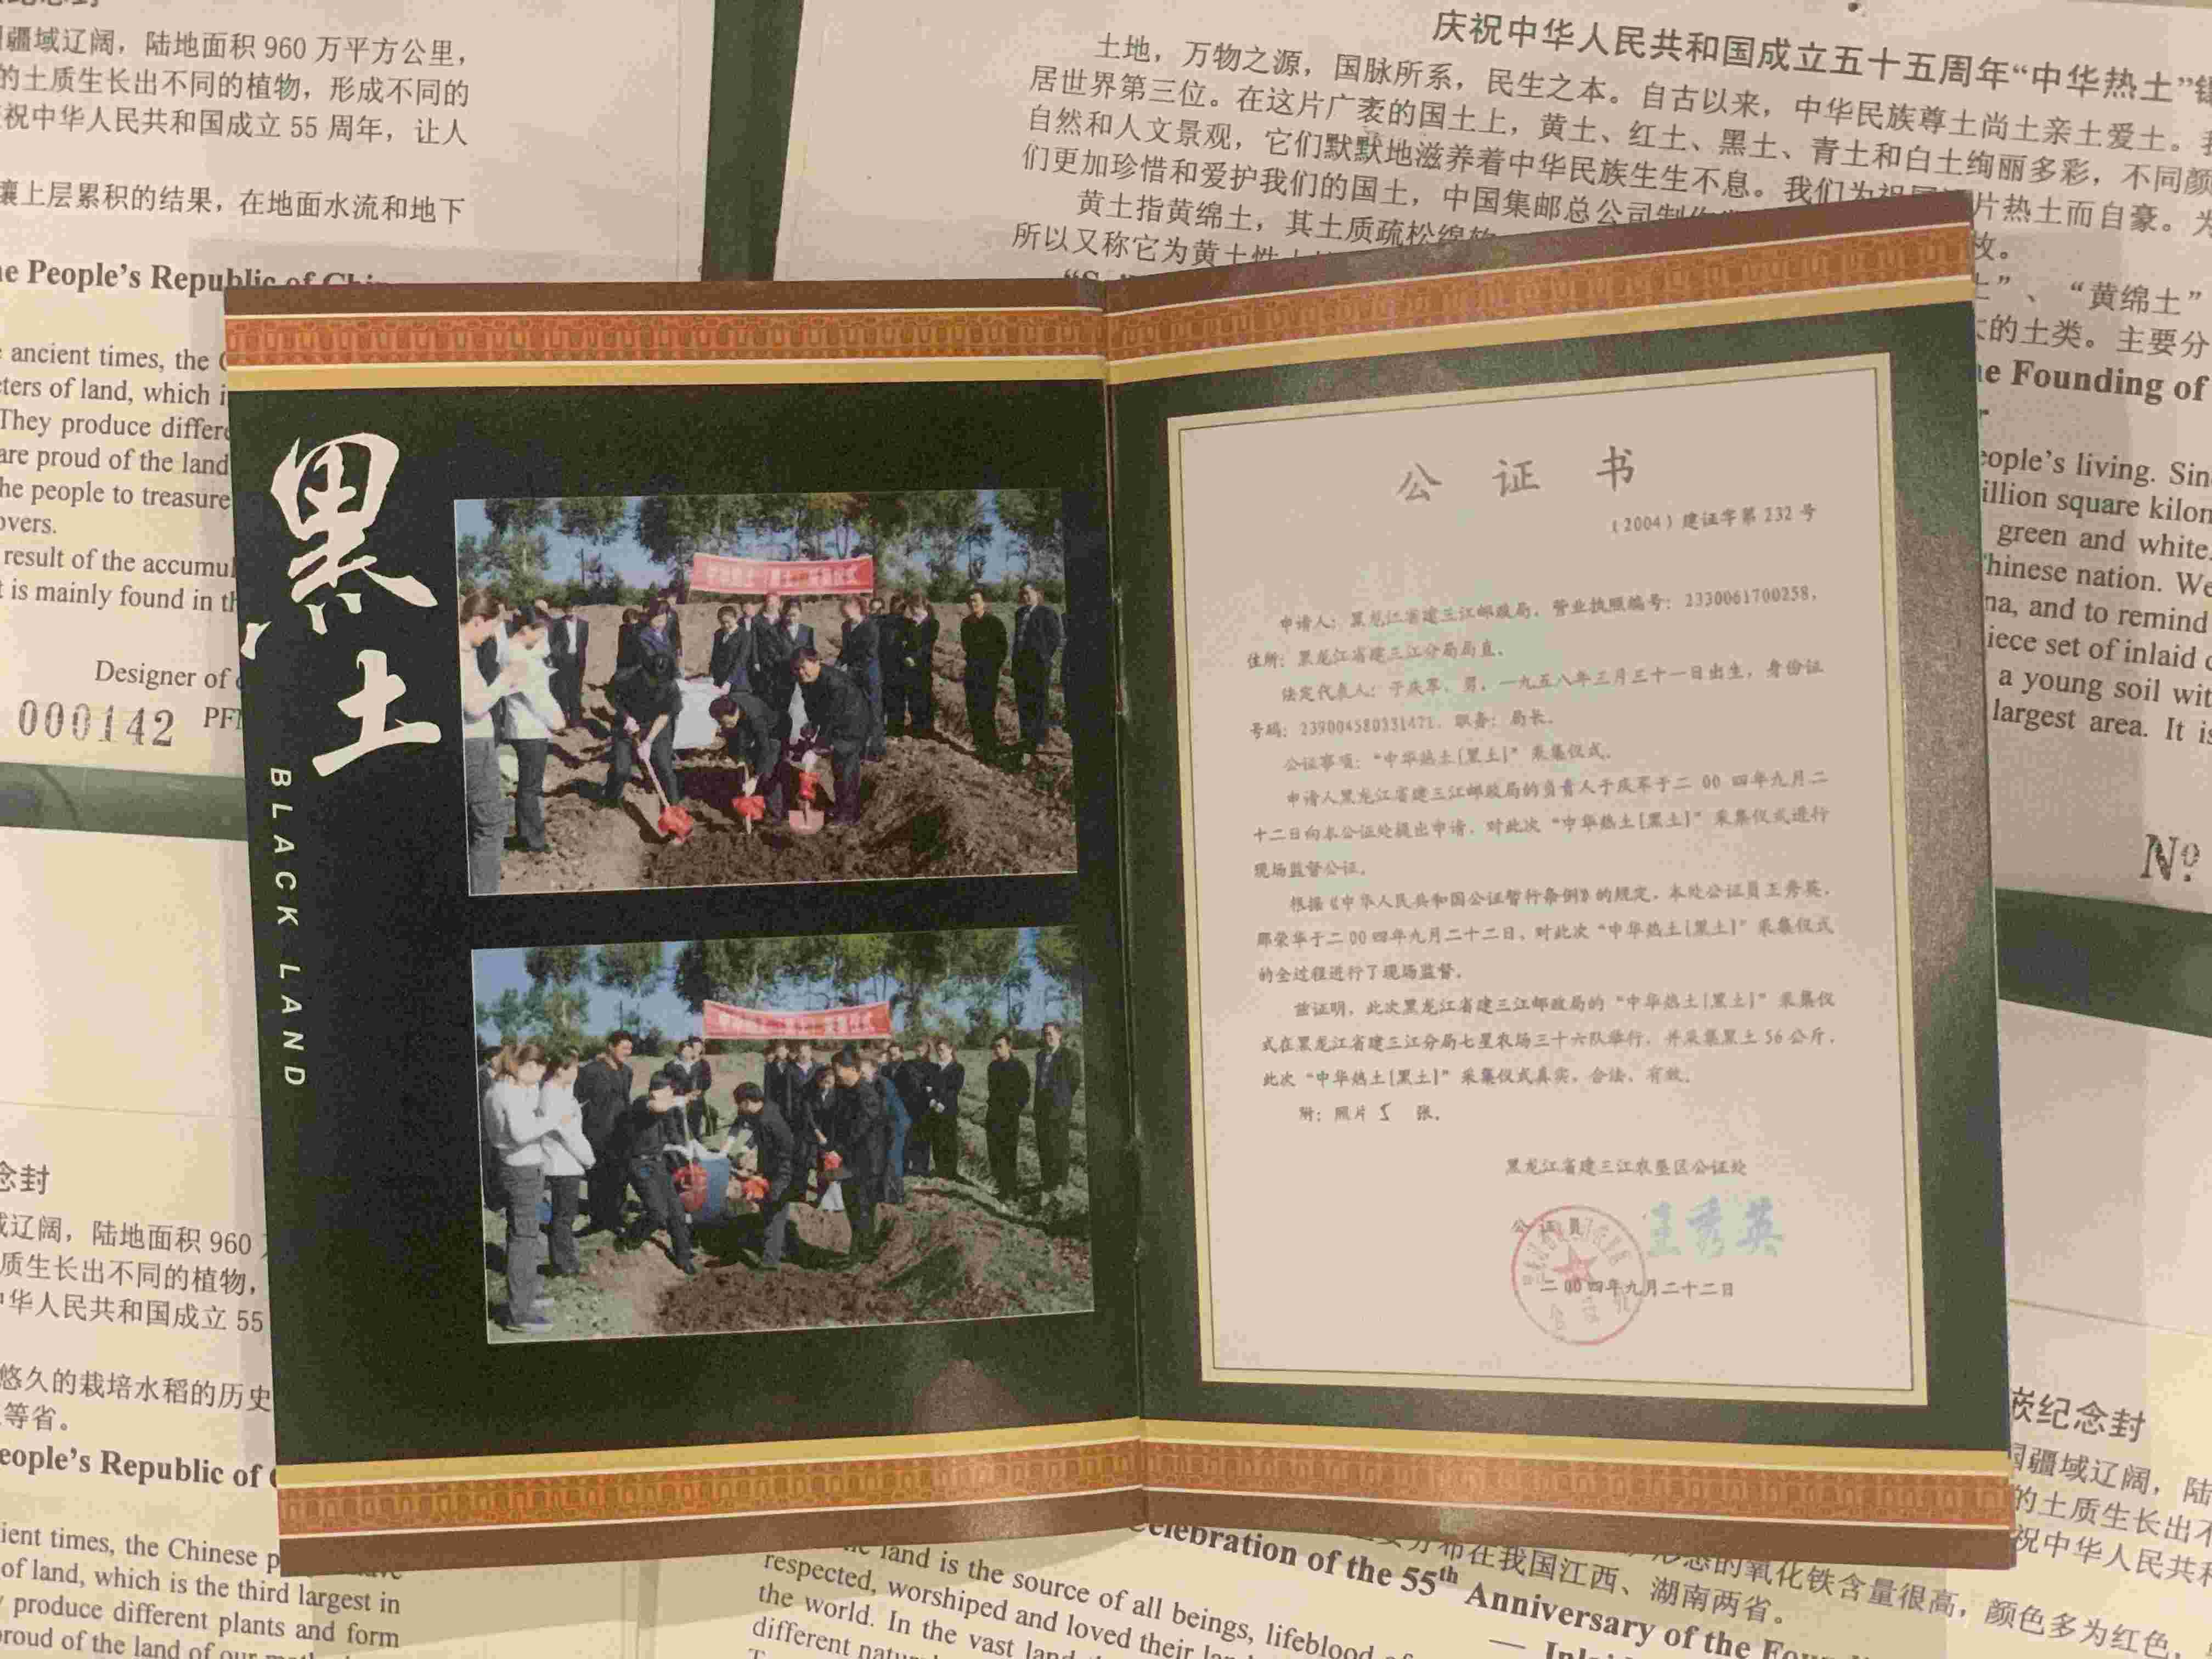 疆域辽阔，陆地面积 960 万平方公里，
的土质生长出不同的植物，形成不同的
祝中华人民共和国成立 55 周年，让人
壤上层累积的结果，在地面水流和地下
he People's Republic of
ancient times, the
ters of land, which
They produce
are proud of the land
he people to treasure
overs.
result of the
t is mainly found in
Designer of
000142
庆祝中华人民共和国成立五十五周年“中华热土”
土地，万物之源，国脉所系，民生之本。自古以来，中华民族尊土尚土亲土爱土。
居世界第三位。在这片广袤的国土上，黄土、红土、黑土、青土和白土绚丽多彩，不同颜
自然和人文景观，它们默默地滋养着中华民族生生不息。我们为祖国 片热土而自豪。为
们更加珍惜和爱护我们的国土，中国集邮总公司制作 枚。
黄土指黄绵土，其土质疏松绵软 土”、“黄绵土”
所以又称它为黄土性土 的土类。主要分
he Founding of
people's living.
illion square
green and white
Chinese nation. We
na, and to remind
iece set of inlaid
a young soil
largest area. It is
№
黑土
BLACK LAND
公证书
（2004）建证字第 232 号
申请人：黑龙江省建三江邮政局，营业执照编号：2330061700258，
住所：黑龙江省建三江分局局直。
法定代表人：于庆军，男，一九五八年三月三十一日出生，身份证
号码：239004580331471，职务：局长。
公证事项：“中华热土[黑土]”采集仪式。
申请人黑龙江省建三江邮政局的负责人于庆军于二 00 四年九月二
十二日向本公证处提出申请，对此次“中华热土[黑土]”采集仪式进行
现场监督公证。
根据《中华人民共和国公证暂行条例》的规定，本处公证员王秀英、
邢荣华于二 00 四年九月二十二日，对此次“中华热土[黑土]”采集仪式
的全过程进行了现场监督。
兹证明，此次黑龙江省建三江邮政局的“中华热土[黑土]”采集仪
式在黑龙江省建三江分局七星农场三十六队举行，并采集黑土 56 公斤，
此次“中华热土[黑土]”采集仪式真实、合法、有效。
附：照片 5 张。
黑龙江省建三江农垦区公证处
公证员 王秀英
二 00 四年九月二十二日
念封
域辽阔，陆地面积 960
质生长出不同的植物，
中华人民共和国成立 55
悠久的栽培水稻的历史
等省。
People's Republic of
ancient times, the Chinese
of land, which is the third largest in
produce different plants and form
proud of the land of our
land is the source of all beings, lifeblood
respected, worshiped and loved their
the world. In the vast
different
分布在我国江西、湖南两省。
的氧化铁含量很高，颜色多为红色，
Celebration of the 55th Anniversary of the
嵌纪念封
国疆域辽阔，陆
的土质生长出不
祝中华人民共和